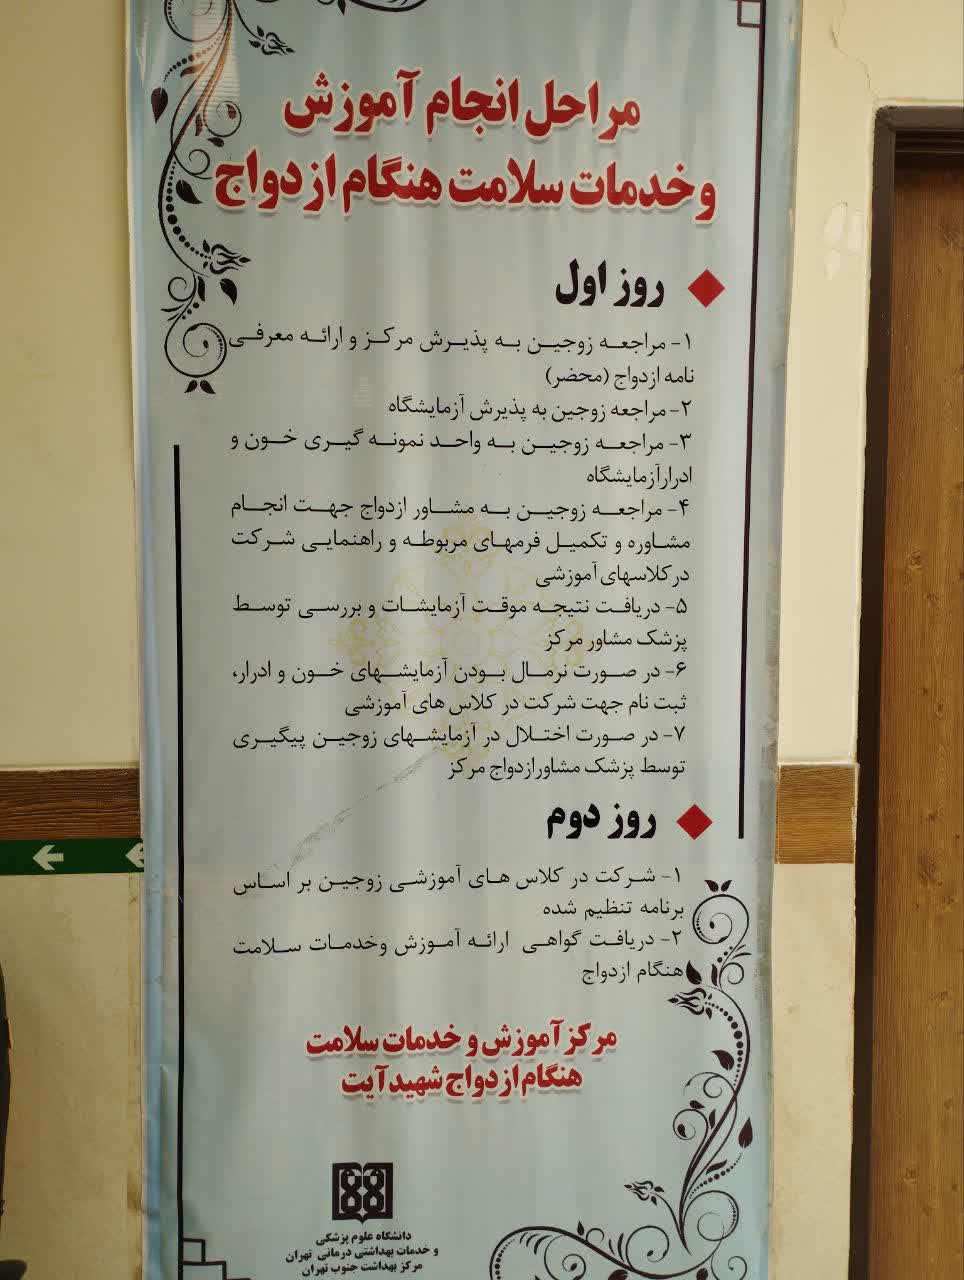 مراحل انجام آموزش
و خدمات سلامت هنگام ازدواج
روز اول
۱- مراجعه زوجین به پذیرش مرکز و ارائه معرفی
نامه ازدواج (محضر)
۲- مراجعه زوجین به پذیرش آزمایشگاه
۳- مراجعه زوجین به واحد نمونه گیری خون و
ادرارآزمایشگاه
۴- مراجعه زوجین به مشاور ازدواج جهت انجام
مشاوره و تکمیل فرمهای مربوطه و راهنمایی شرکت
درکلاسهای آموزشی
۵- دریافت نتیجه موقت آزمایشات و بررسی توسط
پزشک مشاور مرکز
۶- در صورت نرمال بودن آزمایشهای خون و ادرار،
ثبت نام جهت شرکت در کلاس های آموزشی
۷- در صورت اختلال در آزمایشهای زوجین پیگیری
توسط پزشک مشاورازدواج مرکز
روز دوم
۱- شرکت در کلاس های آموزشی زوجین بر اساس
برنامه تنظیم شده
۲- دریافت گواهی ارائه آموزش وخدمات سلامت
هنگام ازدواج
مرکز آموزش و خدمات سلامت
هنگام ازدواج شهید آیت
دانشگاه علوم پزشکی
و خدمات بهداشتی درمانی تهران
مرکز بهداشت جنوب تهران